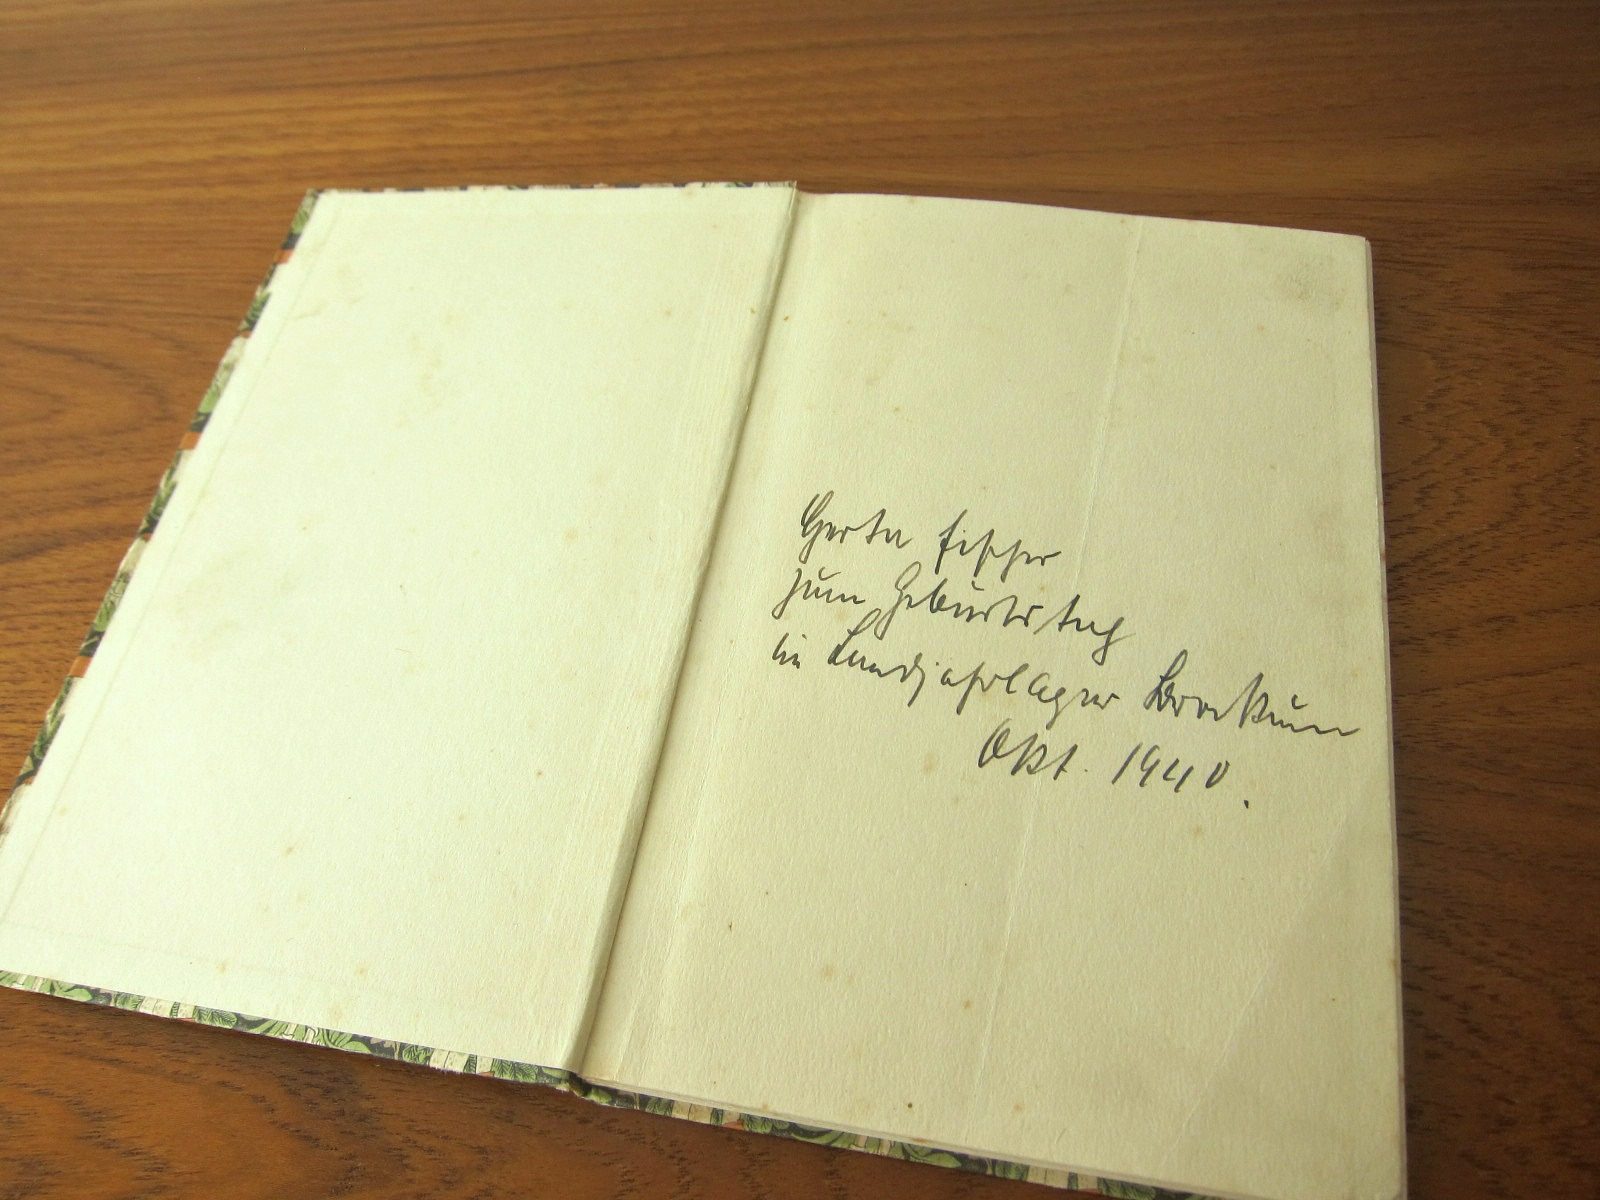 Gerta Fischer
zum Geburtstag
im Landjahrlager
Okt. 1940.